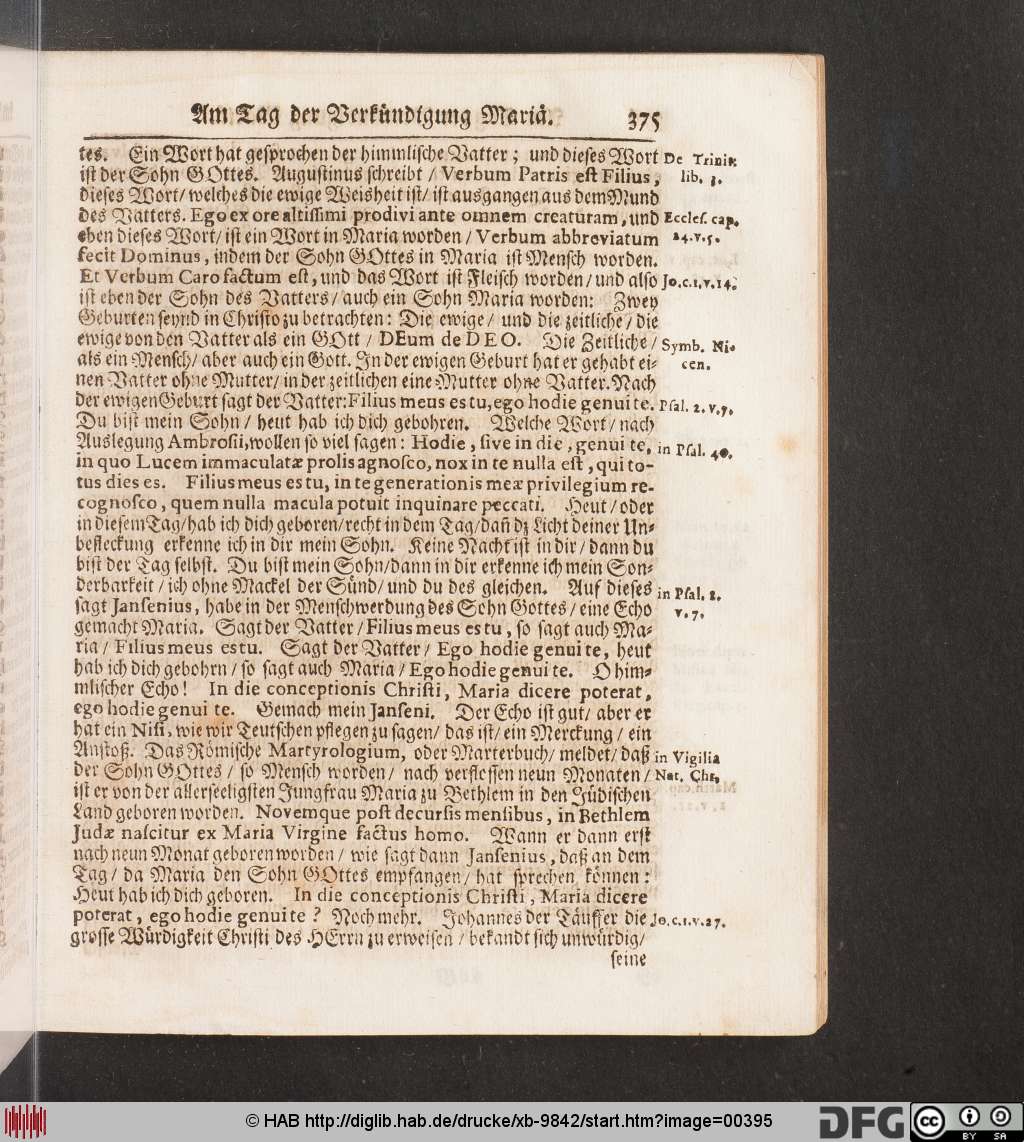 Am Tag der Verkündigung Mariä. 375
tes. Ein Wort hat gesprochen der himmlische Vatter; und dieses Wort
ist der Sohn GOttes. Augustinus schreibt / Verbum Patris est Filius,
dieses Wort/ welches die ewige Weisheit ist/ ist ausgangen aus dem Mund
des Vatters. Ego ex ore altissimi prodivi ante omnem creaturam, und
eben dieses Wort/ ist ein Wort in Maria worden / Verbum abbreviatum
fecit Dominus, indem der Sohn GOttes in Maria ist Mensch worden.
Et Verbum Caro factum est, und das Wort ist Fleisch worden/ und also
ist eben der Sohn des Vatters/ auch ein Sohn Maria worden: Zwey
Geburten seynd in Christo zu betrachten: Die ewige/ und die zeitliche/ die
ewige von den Vatter als ein GOtt / DEum de DEO. Die Zeitliche/
als ein Mensch/ aber auch ein Gott. In der ewigen Geburt hat er gehabt ei-
nen Vatter ohne Mutter/ in der zeitlichen eine Mutter ohne Vatter. Nach
der ewigen Geburt sagt der Vatter: Filius meus es tu, ego hodie genui te.
Du bist mein Sohn/ heut hab ich dich gebohren. Welche Wort/ nach
Auslegung Ambrosii, wollen so viel sagen: Hodie, sive in die, genui te,
in quo Lucem immaculatæ prolis agnosco, nox in te nulla est, qui to-
tus dies es. Filius meus es tu, in te generationis meæ privilegium re-
cognosco, quem nulla macula potuit inquinare peccati. Heut/ oder
in diesem Tag/ hab ich dich geboren/ recht in dem Tag/ dañ dz Licht deiner Un-
befleckung erkenne ich in dir mein Sohn. Keine Nacht ist in dir/ dann du
bist der Tag selbst. Du bist mein Sohn/ dann in dir erkenne ich mein Son-
derbarkeit/ ich ohne Mackel der Sünd/ und du des gleichen. Auf dieses
sagt Jansenius, habe in der Menschwerdung des Sohn Gottes/ eine Echo
gemacht Maria. Sagt der Vatter/ Filius meus es tu, so sagt auch Ma-
ria/ Filius meus es tu. Sagt der Vatter/ Ego hodie genui te, heut
hab ich dich gebohrn/ so sagt auch Maria/ Ego hodie genui te. O him-
mlischer Echo! In die conceptionis Christi, Maria dicere poterat,
ego hodie genui te. Gemach mein Janseni. Der Echo ist gut/ aber er
hat ein Nisi, wie wir Teutschen pflegen zu sagen/ das ist/ ein Merckung/ ein
Anstoß. Das Römische Martyrologium, oder Marterbuch/ meldet/ daß
der Sohn GOttes / so Mensch worden/ nach verflossen neun Monaten/
ist er von der allerseeligsten Jungfrau Maria zu Bethlem in den Jüdischen
Land geboren worden. Novemque post decursis mensibus, in Bethlem
Judæ nascitur ex Maria Virgine factus homo. Wann er dann erst
nach neun Monat geboren worden/ wie sagt dann Jansenius, daß an dem
Tag/ da Maria den Sohn GOttes empfangen/ hat sprechen können:
Heut hab ich dich geboren. In die conceptionis Christi, Maria dicere
poterat, ego hodie genui te? Noch mehr. Johannes der Täuffer die
grosse Würdigkeit Christi des HErrn zu erweisen/ bekandt sich unwürdig/
seine
De Trinit.
lib. 3.
Eccles. cap.
24. v. 5.
Jo. c. 1. v. 14.
Symb. Ni-
cen.
Psal. 2. v. 7.
in Psal. 40.
in Psal. 2.
v. 7.
in Vigilia
Nat. Chr.
Jo. c. 1. v. 27.
© HAB http://diglib.hab.de/drucke/xb-9842/start.htm?image=00395
DFG
cc
BY SA